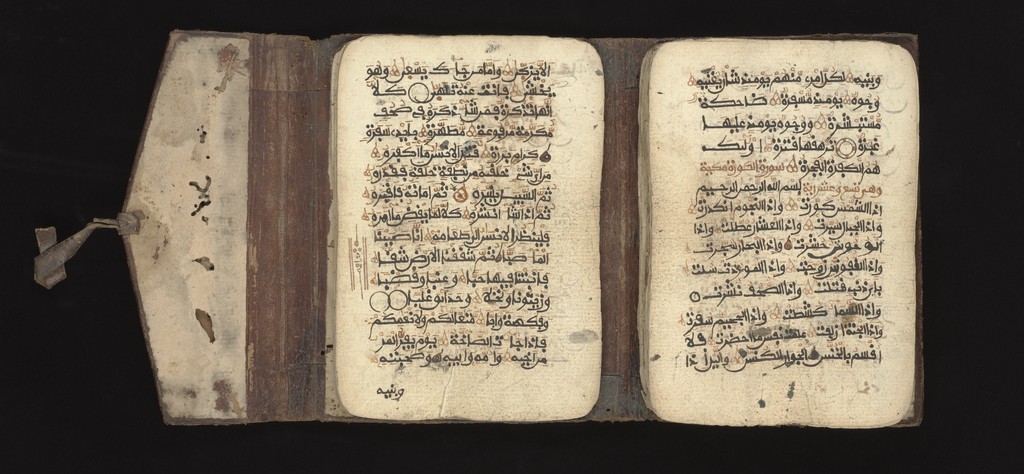 الا يزكى واما من جاك يسعى وهو
يخشى فانت عنه تلهى كلا
انها تذكرة فمن شا ذكره في صحف
مكرمة مرفوعة مطهرة بايدي سفرة
كرام بررة قتل الانسن ما اكفره
من اي شي خلقه من نطفة خلقه فقدره
ثم السبيل يسره ثم اماته فاقبره
ثم اذا شا انشره كلا لما يقض ما امره
فلينظر الانسن الى طعامه انا صببنا
الما صبا ثم شققنا الارض شقا
فانبتنا فيها حبا وعنبا وقضبا
وزيتونا ونخلا وحدايق غلبا
وفكهة وابا متعا لكم ولانعمكم
فاذا جات الصاخة يوم يفر المر
من اخيه وامه وابيه وصحبته
وبنيه
وبنيه لكل امري منهم يومئذ شان يغنيه
وجوه يومئذ مسفرة ضاحكة
مستبشرة ووجوه يومئذ عليها
غبرة ترهقها قترة اولئك
هم الكفرة الفجرة سورة مكية
وهي تسع وعشرون بسم الله الرحمن الرحيم
اذا الشمس كورت واذا النجوم انكدرت
واذا الجبال سيرت واذا العشار عطلت واذا
الوحوش حشرت واذا البحار سجرت
واذا النفوس زوجت واذا الموءدة سئلت
باي ذنب قتلت واذا الصحف نشرت
واذا السما كشطت واذا الجحيم سعرت
واذا الجنة ازلفت علمت نفس ما احضرت فلا
اقسم بالخنس الجوار الكنس واليل اذا